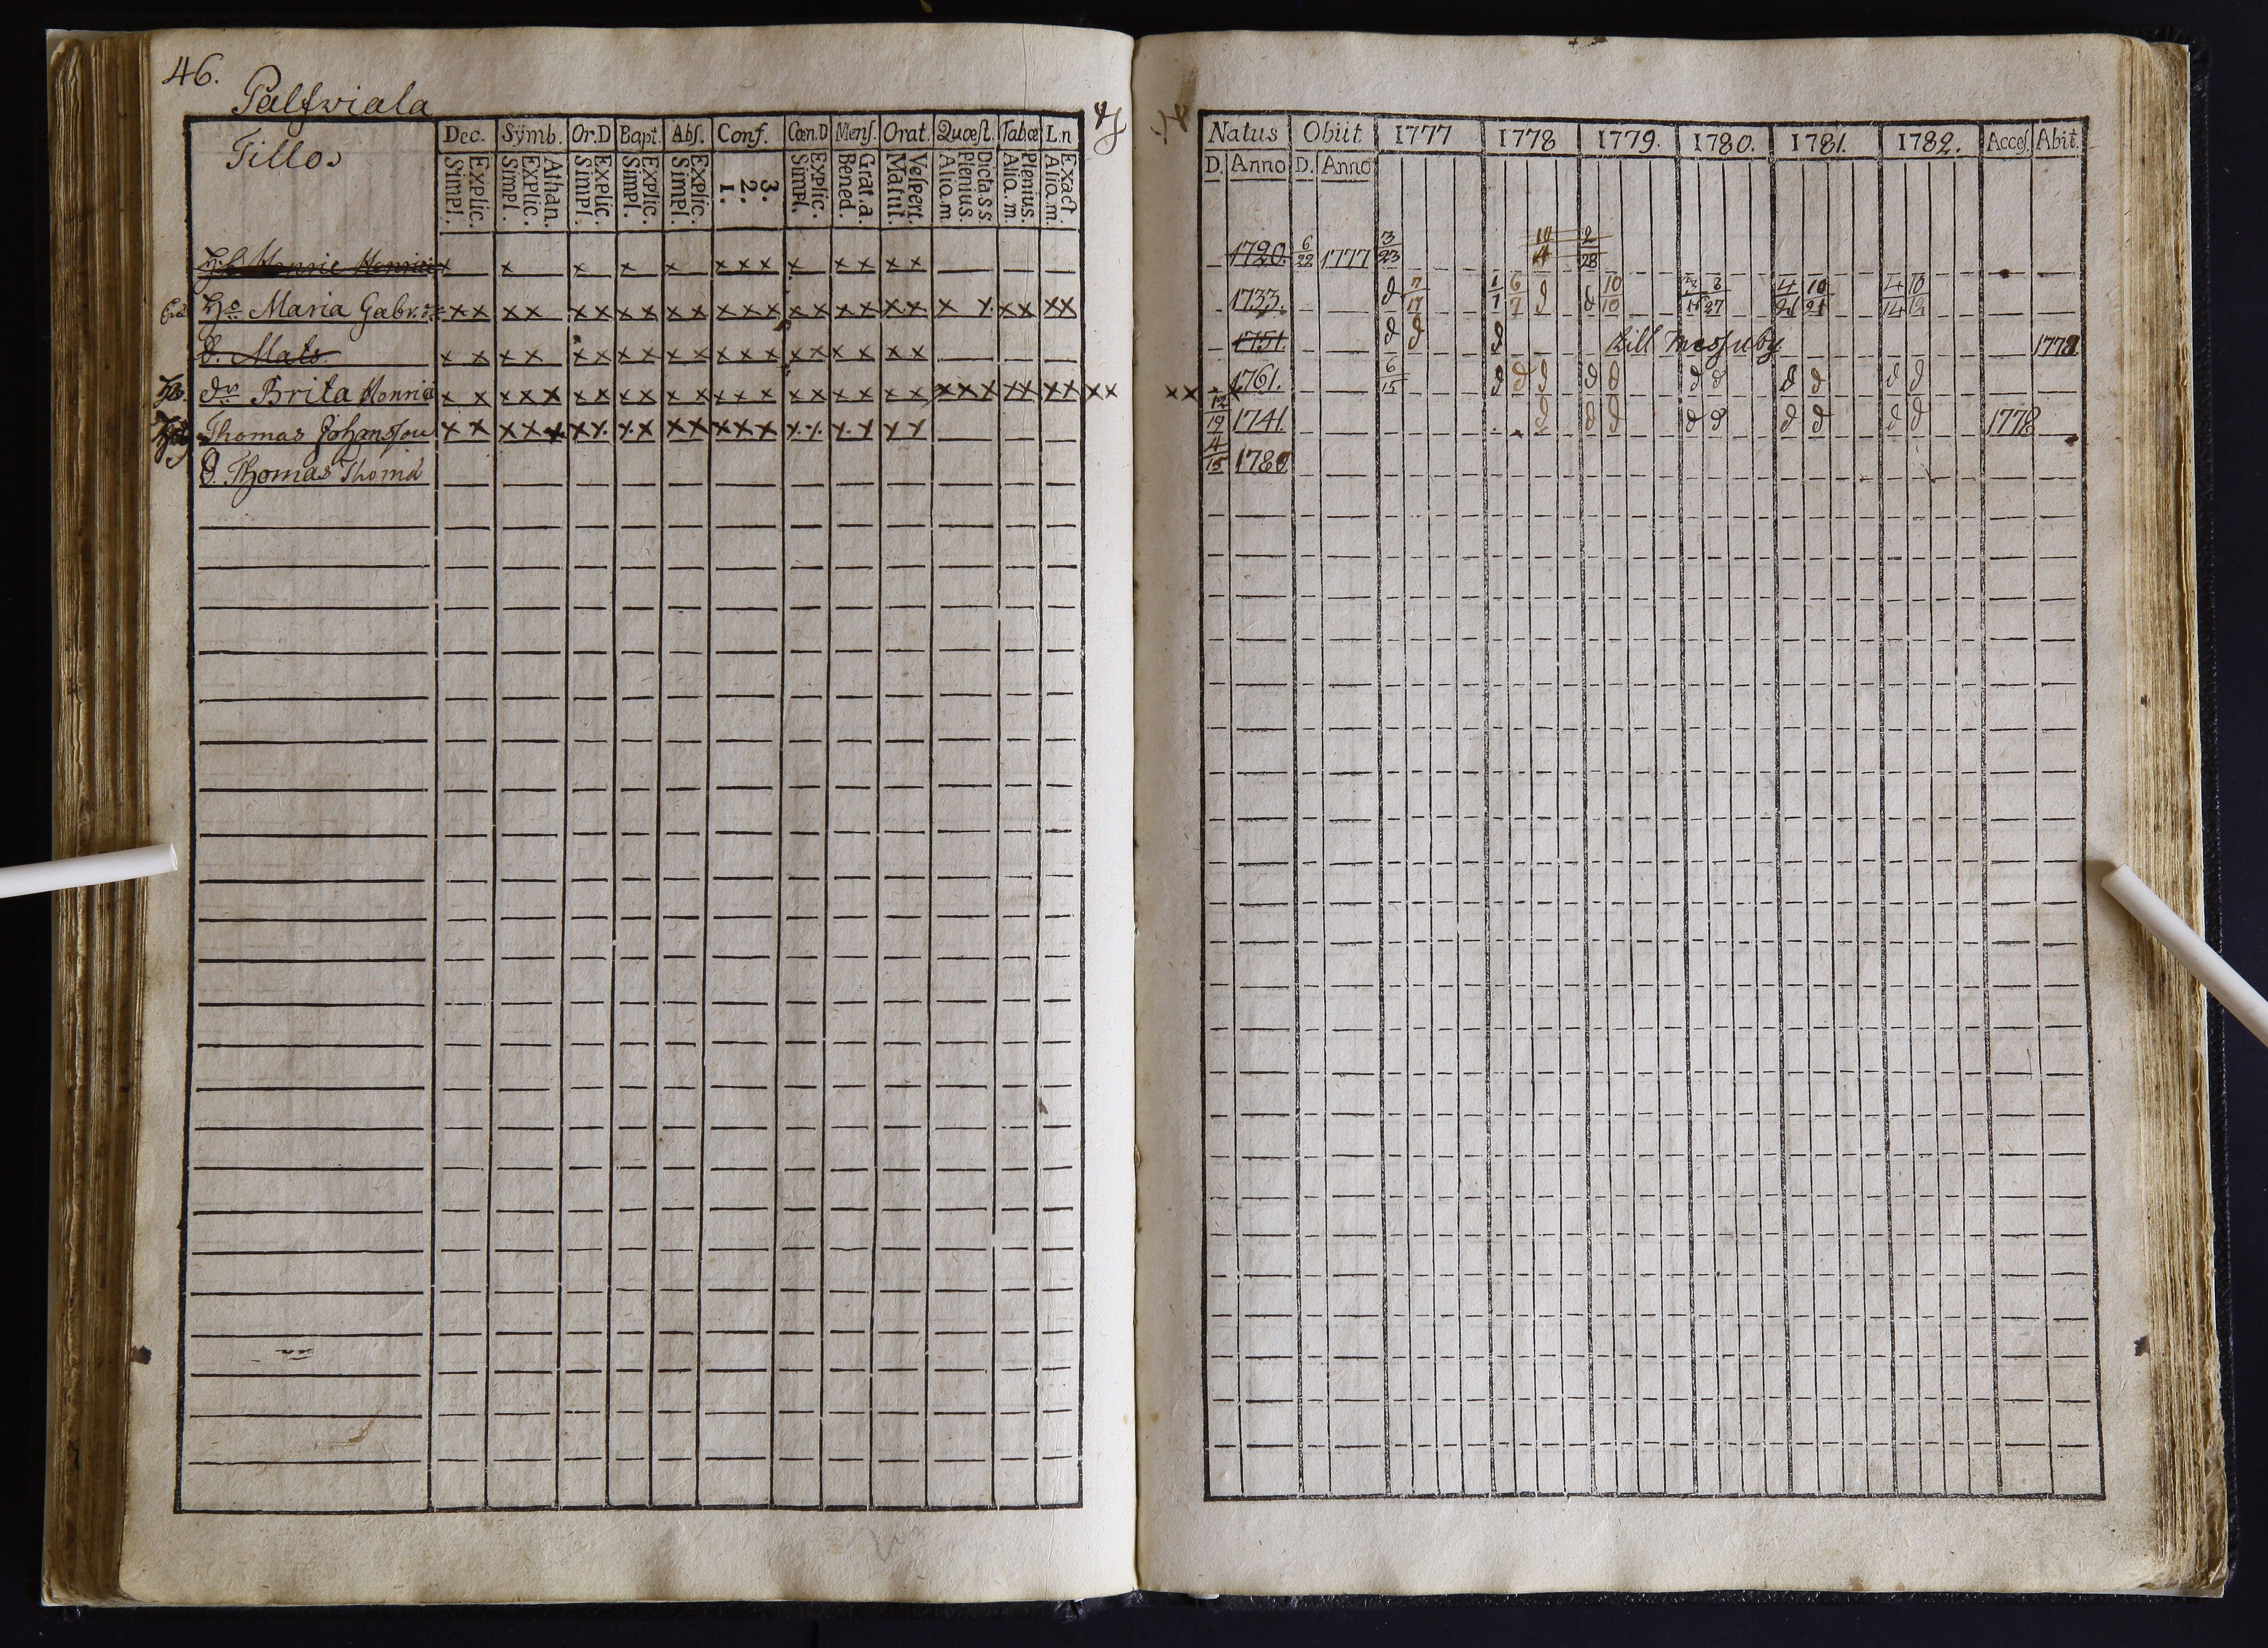 46.
Palfviala
Tillos
Dec. Sÿmb. Or.D Bapt. Abſ. Conf. Cœn.D Menſ. Orat. Quœſt. Tabœ L.n
Explic. Simpl. Athan. Explic. Simpl. Explic. Simpl. Explic. Simpl. Explic. Simpl. 3. 2. 1. Explic. Simpl. Grat.a. Bened. Veſpert. Matut. Dicta s s. Plenius. Aliq.m Plenius. Aliq.m. Exact. Aliq.m.
x x x x x x x x x x x x x
Ho Maria Gabr.dr x x x x x x x x x x x x x x x x x x x x x x x x x x
d. Mats x x x x x x x x x x x x x x x x x x x
dr Brita Henrici x x x x x x x x x x x x x x x x x x x x x x x x x x x x x
Thomas Johansson x x x x x x x x x x x x x x x x x x x x
d. Thomas Thomæ
Natus Obiit. 1777 1778 1779. 1780. 1781. 1782. Acceſ. Abit.
D. Anno D. Anno
1720. 6/22 1777 3/23 2/28
1733. d 7/17 1/1 6/7 d d 10/10 4/21 10/21 4/14 10/12
1751. d d d till 1778
1761. 6/15 d d d d d d d d d d d
12/19 1741. d d d d d d d d d 1778
4/15 1780